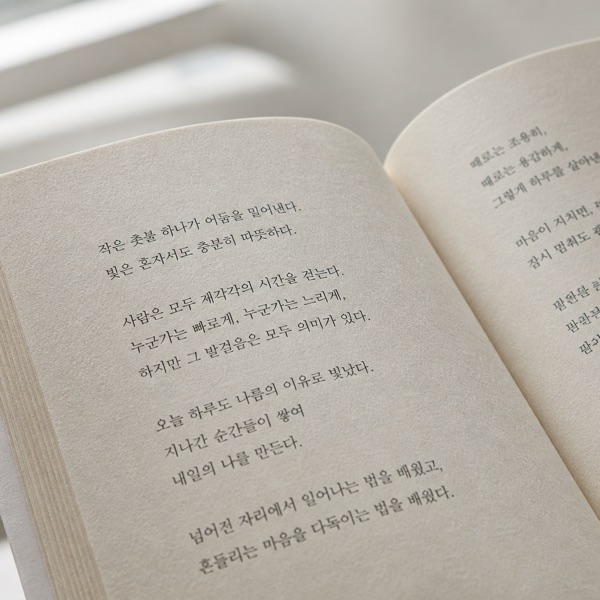 작은 촛불 하나가 어둠을 밀어낸다.
빛은 혼자서도 충분히 따뜻하다.
사람은 모두 제각각의 시간을 걷는다.
누군가는 빠르게, 누군가는 느리게,
하지만 그 발걸음은 모두 의미가 있다.
오늘 하루도 나름의 이유로 빛났다.
지나간 순간들이 쌓여
내일의 나를 만든다.
넘어진 자리에서 일어나는 법을 배웠고,
흔들리는 마음을 다독이는 법을 배웠다.
때로는 조용히,
때로는 용감하게,
그렇게 하루를
마음이 지치면,
잠시 멈춰도